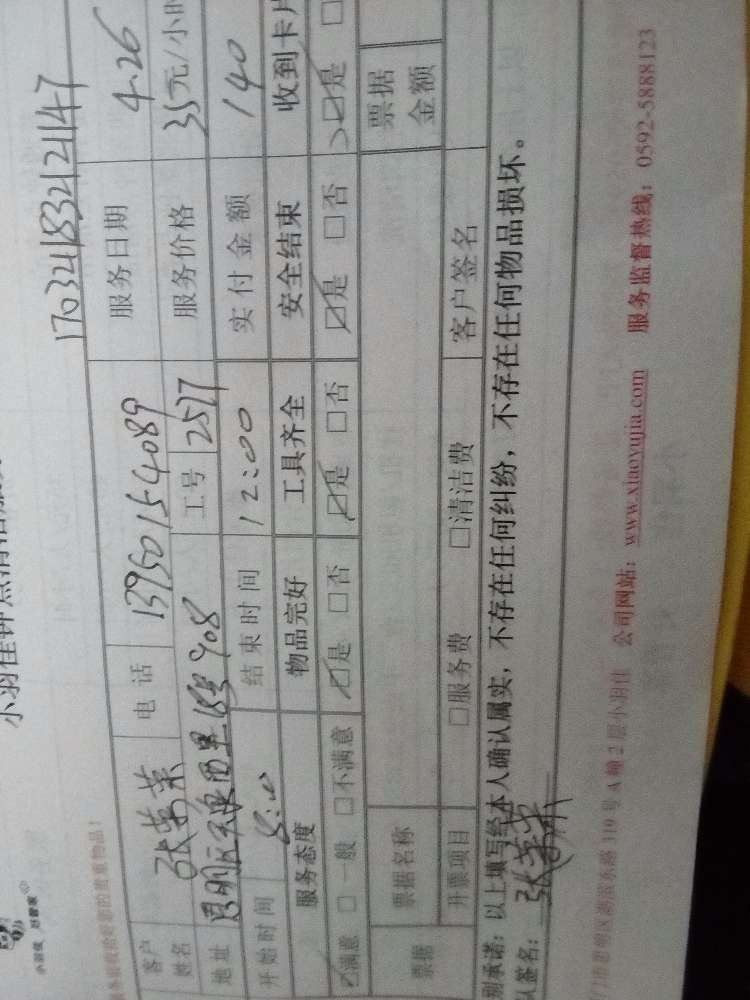 小羽佳 好管家
小羽佳钟点清洁服务
17032183212147
服务前
您的贵重物品！
客户姓名 张荣荣 电话 13950154089 服务日期 4.26
地址 思明区天湖西里 185 908 工号 2577 服务价格 35元/小时
开始时间 8:00 结束时间 12:00 实付金额 140
服务态度 物品完好 工具齐全 安全结束 收到卡片
☑满意 □一般 □不满意 ☑是 □否 ☑是 □否 ☑是 □否 ☑是 □
票据 票据名称 票据金额
开票项目 □服务费 □清洁费 客户签名
别承诺：以上填写经本人确认属实，不存在任何纠纷，不存在任何物品损坏。
认签名： 张荣荣
门市思明区湖滨南路 319 号 A 幢 2 层小羽佳 公司网站：www.xiaoyujia.com 服务监督热线：0592-5888123